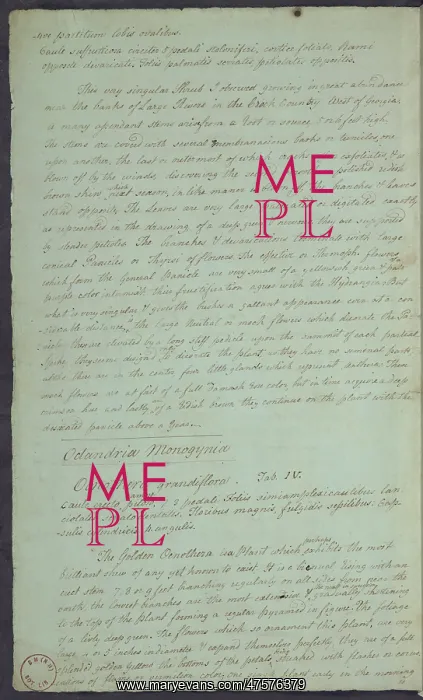 sive partitum lobis ovalibus.
Caule sufruticosa circiter 5 pedali stolonifera, cortice foliata, Ramis
opposite divaricatis, foliis palmatis serratis petiolatis oppositis.
This very singular Shrub I observed growing in great abundance
near the banks of large Rivers in the Creek Country West of Georgia,
is many ascendant stems arise from a root or source 5 or six feet high.
The stems are covered with several membranacious barks or tunicles, one
upon another, the last or outermost of which cracks exfoliates, & is
blown off by the winds, discovering the
brown skin next season, in like manner of the branches & leaves
stand opposite. The Leaves are very large or digitated exactly
as represented in the drawing, of a deep green they are supported
by slender petioles. The branches & divarications terminate with large
conical Panicles or Thyrsi of flowers
which form the General Panicle are very small of a yellowish green & pale
purple color intermixt. this fructification agrees with the Hydrangia. but
what is very singular & gives the bushes a gallant appearance even at a con
siderable distance, the large Neutral or mock flowers which decorate the Pa
nicle; these are elevated by a long stiff pedicle upon the summit of each partial
Spike, they seem designd to decorate the plant, as they have no seminal parts
unless that are in the center four little glands which represent anthera. These
mock flowers are at first of a full Damask rose color, but in time acquire a deep
crimson hue and lastly, of a redish brown they continue on the plant with the
desicated panicle above a year.
Octandria Monogynia
grandiflora. Tab. IV.
Caule erecto 7, 8 pedali foliis semiamplexicaulibus lan
ciolatis floribus magnis, fulgidis sessilibus. Cap-
sulis cylindricis 4 angulis.
The Golden Oenothera is a Plant which perhaps exhibits the most
brilliant shew of any yet known to exist. It is a bienial rising with an
erect stem 7, 8 or 9 feet branching regularly on all sides from near the
earth; the lowest branches are the most extensive & gradually shortening
to the top of the plant forming a regular pyramid in figure. The foliage
of a lively deep green. the flowers which so ornament this plant, are very
large, 4 or 5 inches in diameter & expand themselves perfectly. they are of a full
splendid golden yellow the bottoms of the petals marked with flashes or
of color; early in the morning
ME
PL
ME
PL
www.maryevans.com/47576379